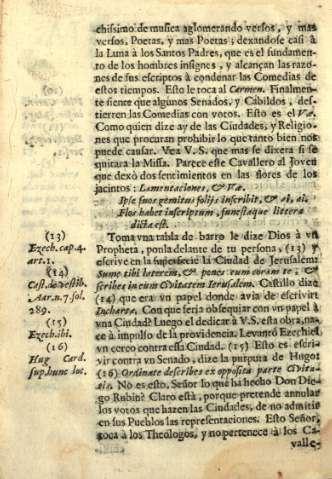 chissimo de musica aglomerando versos, y mas
versos, Poetas, y mas Poetas; dexandose casi à
la Luna à los Santos Padres, que es el fundamen-
to de los hombres insignes, y alcançan las razo-
nes de sus escriptos à condenar las Comedias de
estos tiempos. Esto le toca al Carmen. Finalmen-
te siente que algunos Senados, y Cabildos, des-
tierren las Comedias con votos. Esto es el Væ.
Como quien dize ay de las Ciudades, y Religio-
nes que procuran prohibir lo que tanto bien nos
puede causar. Vea V.S. que mas se dixera si se
quitara la Missa. Parece este Cavallero al Joven
que dexò dos sentimientos en las flores de los
jacintos: Lamentaciones, & Væ.
Ipse suos gemitus folijs inscribit, & ai, ai,
Flos habet inscriptum, funestaque littera
dicta est.
Toma vna tabla de barro le dize Dios à vn
Propheta, ponla delante de tu persona, (13) y
escrive en la superficie la Ciudad de Jerusalem:
Sume tibi laterem, & pones eum coram te, & s-
cribes in eum Civitatem Jerusalem. Castillo dize
(14) que era vn papel donde avia de escrivir:
In charta. Con que seria obsequiar con vn papel à
vna Ciudad? Luego el dedicar à V.S. esta obra, na-
ce à impulso de la providencia. Levantò Ezechiel
vn cerco contra essa Ciudad. (15) Esto es escri-
vir contra vn Senado, dize la purpura de Hugo:
(16) Ordinate describes ex opposita parte Civita-
tis. No es esto, Señor lo què ha hecho Don Die-
go Rubin? Claro està, porque pretende annular
los votos que hazen las Ciudades, de no admitir
en sus Pueblos las representaciones. Esto Señor,
toca à los Theologos, y no pertenece à los Ca-
valle-
(13)
Ezech. cap. 4.
art. 1.
(14)
Cast. de vestib.
Aar. n. 7. fol.
289.
(15)
Ezech. ibi.
(16)
Hug Card.
sup. hunc loc.